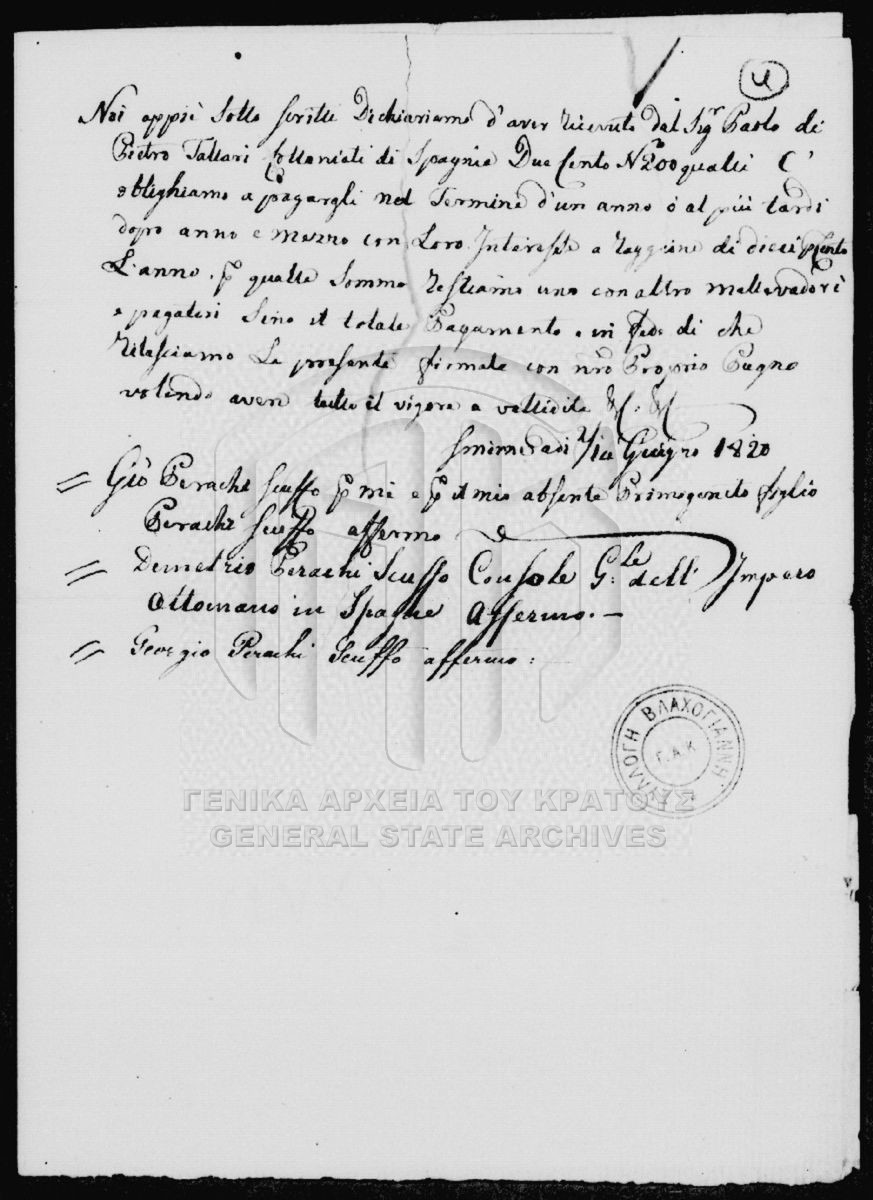 4
Noi appiè sotto scritti Dichiariamo d'aver ricevuto dal Sigr Paolo di
Pietro Tallari Collonati di Spagnia Due Cento No 200 qualli C'
obblighiamo a pagargli nel Termine d'un anno ò al più tardi
dopo anno e mezzo con Loro Interesse a raggione di dieci pCento
L'anno. p qualle Somma restiamo uno con altro mallevadori
e pagatori Sino il totale Pagamento e in fede di che
rilasciamo La presente firmata con nro Proprio Pugno
volendo aver tutto il vigore e vallidità &. &
Smirne adì 2/14 Guigno 1820
= Giò Perachi Scuffo p me e p il mio absente Primogenito figlio
Perachi Scuffo affermo
= Demetrio Perachi Scuffo Console G:le dell' Impero
Ottomano in Spagne Affermo. —
= Georgio Perachi Scuffo affermo:
ΣΥΛΛΟΓΗ ΒΛΑΧΟΓΙΑΝΝΗ
Γ.Α.Κ
ΓΕΝΙΚΑ ΑΡΧΕΙΑ ΤΟΥ ΚΡΑΤΟΥΣ
GENERAL STATE ARCHIVES